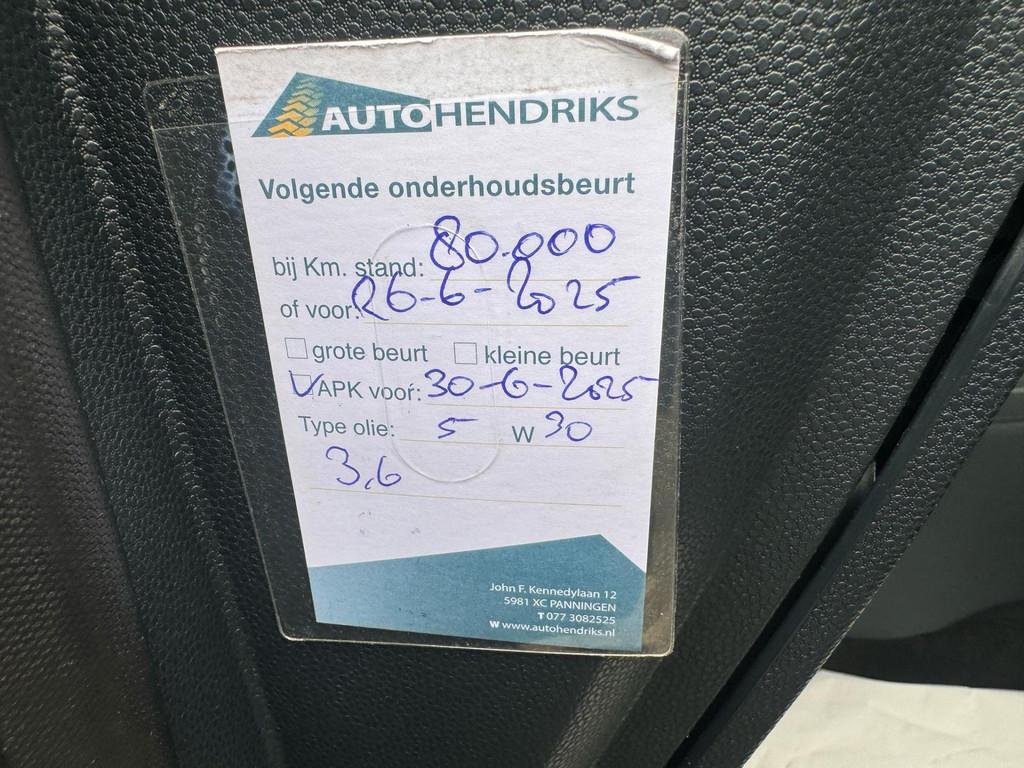 AUTOHENDRIKS
Volgende onderhoudsbeurt
bij Km. stand: 80.000
of voor: 26-6-2025
grote beurt kleine beurt
APK voor: 30-6-2025
Type olie: 5 W 30
3,6
John F. Kennedylaan 12
5981 XC PANNINGEN
T 077 3082525
W www.autohendriks.nl